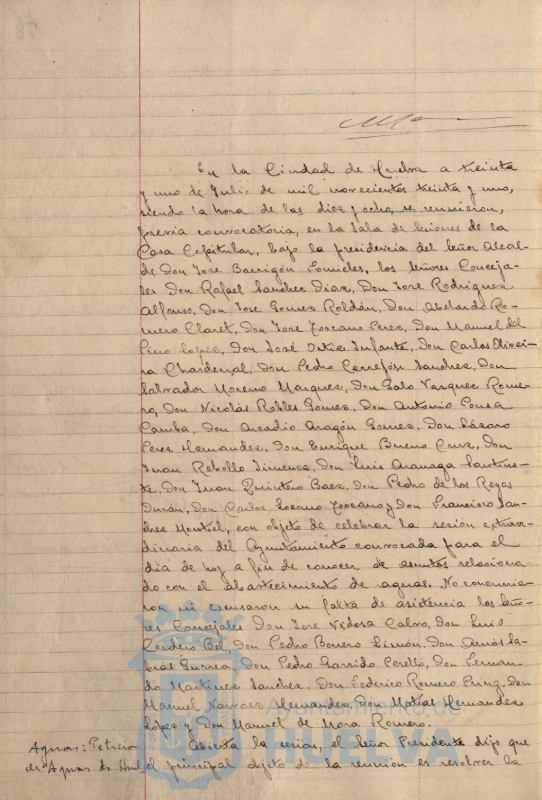 En la Ciudad de Huelva a treinta
y uno de Julio de mil novecientos treinta y uno,
siendo la hora de las diez y ocho, se reunieron,
previa convocatoria, en la Sala de sesiones de la
Casa Capitular, bajo la presidencia del Señor Alcal-
de Don José Barrigón Fornieles, los señores Conceja-
les Don Rafael Sanchez Diaz, Don José Rodriguez
Alfonso, Don José Gomez Roldán, Don Abelardo Ro-
mero Claret, Don José Toscano Perez, Don Manuel del
Pino Lopez, Don José Ortiz Infante, Don Carlos Oliveira
Chardenal, Don Pedro Cerrejón Sanchez, Don
Salvador Moreno Marquez, Don Galo Vazquez Rome-
ro, Don Nicolás Robles Gomez, Don Antonio Pousa
Camba, Don Arcadio Aragón Gomez, Don Lázaro
Perez Hernandez, Don Enrique Bueno Cruz, Don
Juan Rebollo Jimenez, Don Luis Aranaga
Don Juan Quintero Baez, Don Pedro de los Reyes
Durán, Don Carlos Lozano Toscano y Don Francisco San-
chez Montiel, con objeto de celebrar la sesión extraor-
dinaria del Ayuntamiento convocada para el
dia de hoy a fin de conocer de asuntos relaciona-
do con el abastecimiento de aguas. No concurrie-
ron ni excusaron su falta de asistencia los Seño-
res Concejales Don José Vidosa Calvo, Don Luis
Cordero Bel, Don Pedro Borrero Limón, Don Amós Sa-
brás Gurrea, Don Pedro Garrido Perelló, Don Fernan-
do Martinez Sanchez, Don Federico Romero Don
Manuel Narvaez Hernandez, Don Matias Hernandez
Lopez y Don Manuel de Mora Romero.
Aguas: Peticion Abierta la sesión, el Señor Presidente dijo que
de Aguas de Huel el principal objeto de la reunión es resolver la
Ayuntamiento de
HUELVA